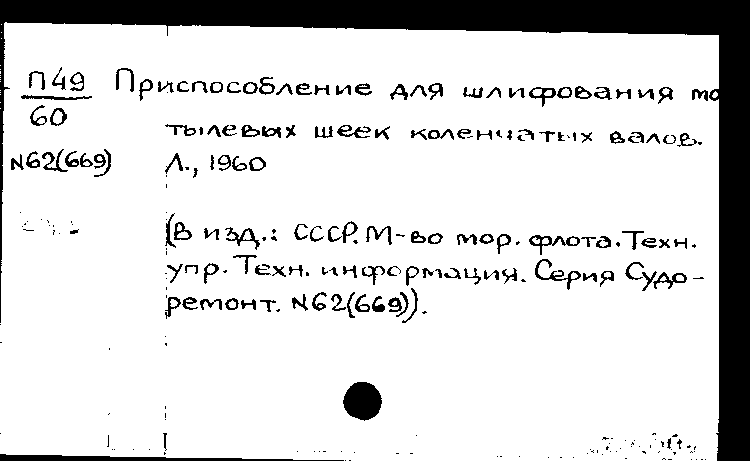 П49 Приспособление для шлифования мо
60
тылевых шеек коленчатых валов.
N62(669) Л., 1960
(В изд.: СССР. М-во мор. флота. Техн.
упр. Техн. информация. Серия Судо-
ремонт. N62(669)).